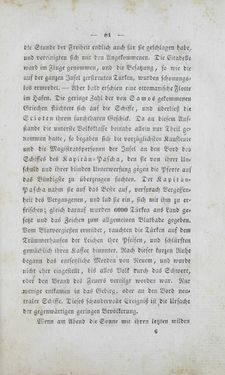 — 81 —
die Stunde der Freiheit endlich auch für sie geschlagen habe,
und vereinigten sich mit den Angekommenen. Die Citadelle
ward im Fluge genommen, und die Besatzung, so wie die
auf der ganzen Insel zerstreuten Türken, wurden schonungs-
los ermordet. — Aber bald erschien eine ottomanische Flotte
im Hafen. Die geringe Zahl der von Samos gekommenen
Griechen schiffte sich in größter Eile wieder ein, und überließ die
Scioten ihrem grausamen Geschick. Da an diesem Aufstande
die unterste Volksklasse beinahe nur allein Theil genommen
hatte, so begaben sich die vorzüglichsten Kaufleute
und die Magistratspersonen der Insel an den Bord des
Schiffes des Kapitän-Pascha, den sie von ihrer Unschuld
und ihrer blinden Unterwerfung gegen die Pforte auf
das Bündigste zu überzeugen suchten. Der Kapitän-
Pascha nahm sie auf das Beste auf, versprach Vergessenheit
des Vergangenen, und ließ, als sie, mit sich
und ihm zufrieden, weggegangen waren, 6000 Türken ans Land ge-
hen und das Zeichen zum allgemeinen Blutbade geben.
Vom Blutvergießen ermüdet, rauchten die Türken auf dem
Trümmerhaufen der Leichen ihre Pfeifen, und schlürften
gemächlich ihren Kaffee hinunter. Nach dieser Ruhe
begann das entsetzliche Morden von Neuem, und wurde
nicht eher eingestellt, bis alles Volk durch das Schwert,
oder den Brand des Feuers vernichtet worden war. Nur
wenige entkamen in das Gebirg, oder an den Bord neu-
traler Schiffe. Dieses schaudervolle Ereigniß ist die Ursache
der gegenwärtigen geringen Bevölkerung.
Wenn am Abend die Sonne mit ihren letzten milden
6